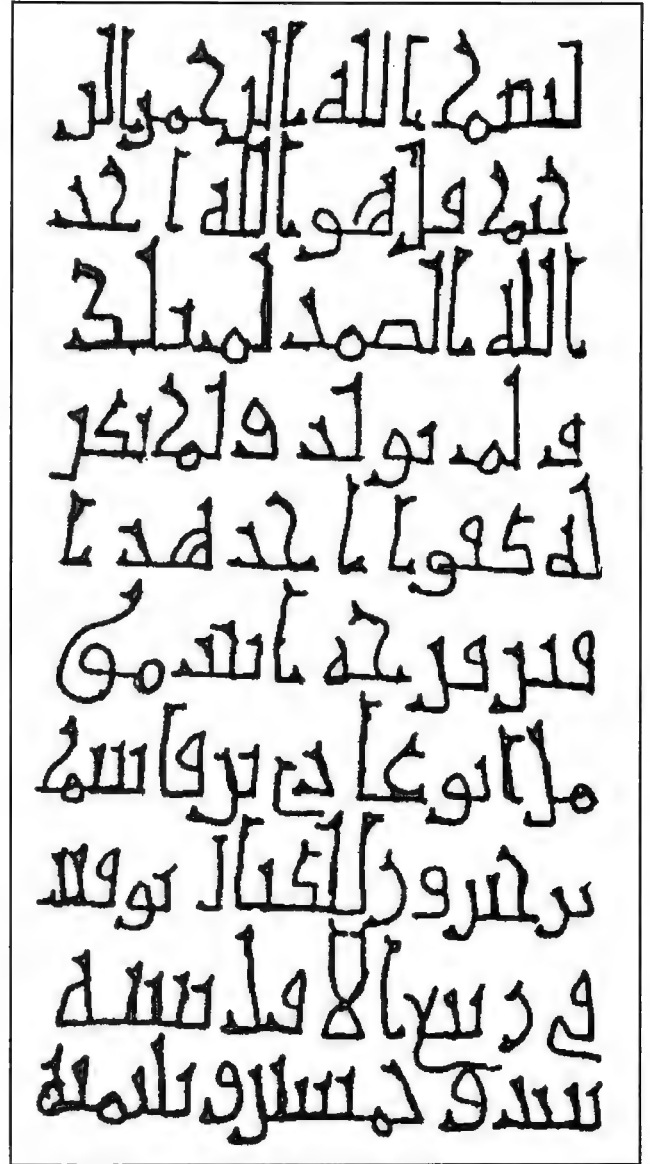 بسم الله الرحمن الر
حيم قل هو الله احد
الله الصمد لم يلد
و لم يولد و لم يكن
له كفوا احد هذا
قبر ابنت
بن قاسم
بن الكيال توفيت
في ربيع الاول سنة
و خمسين و ثلثمئة